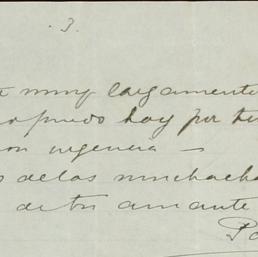 . 3.
muy largamente
puedo hoy por te
con urgencia —
de las muchacha
de tu amante
Pa